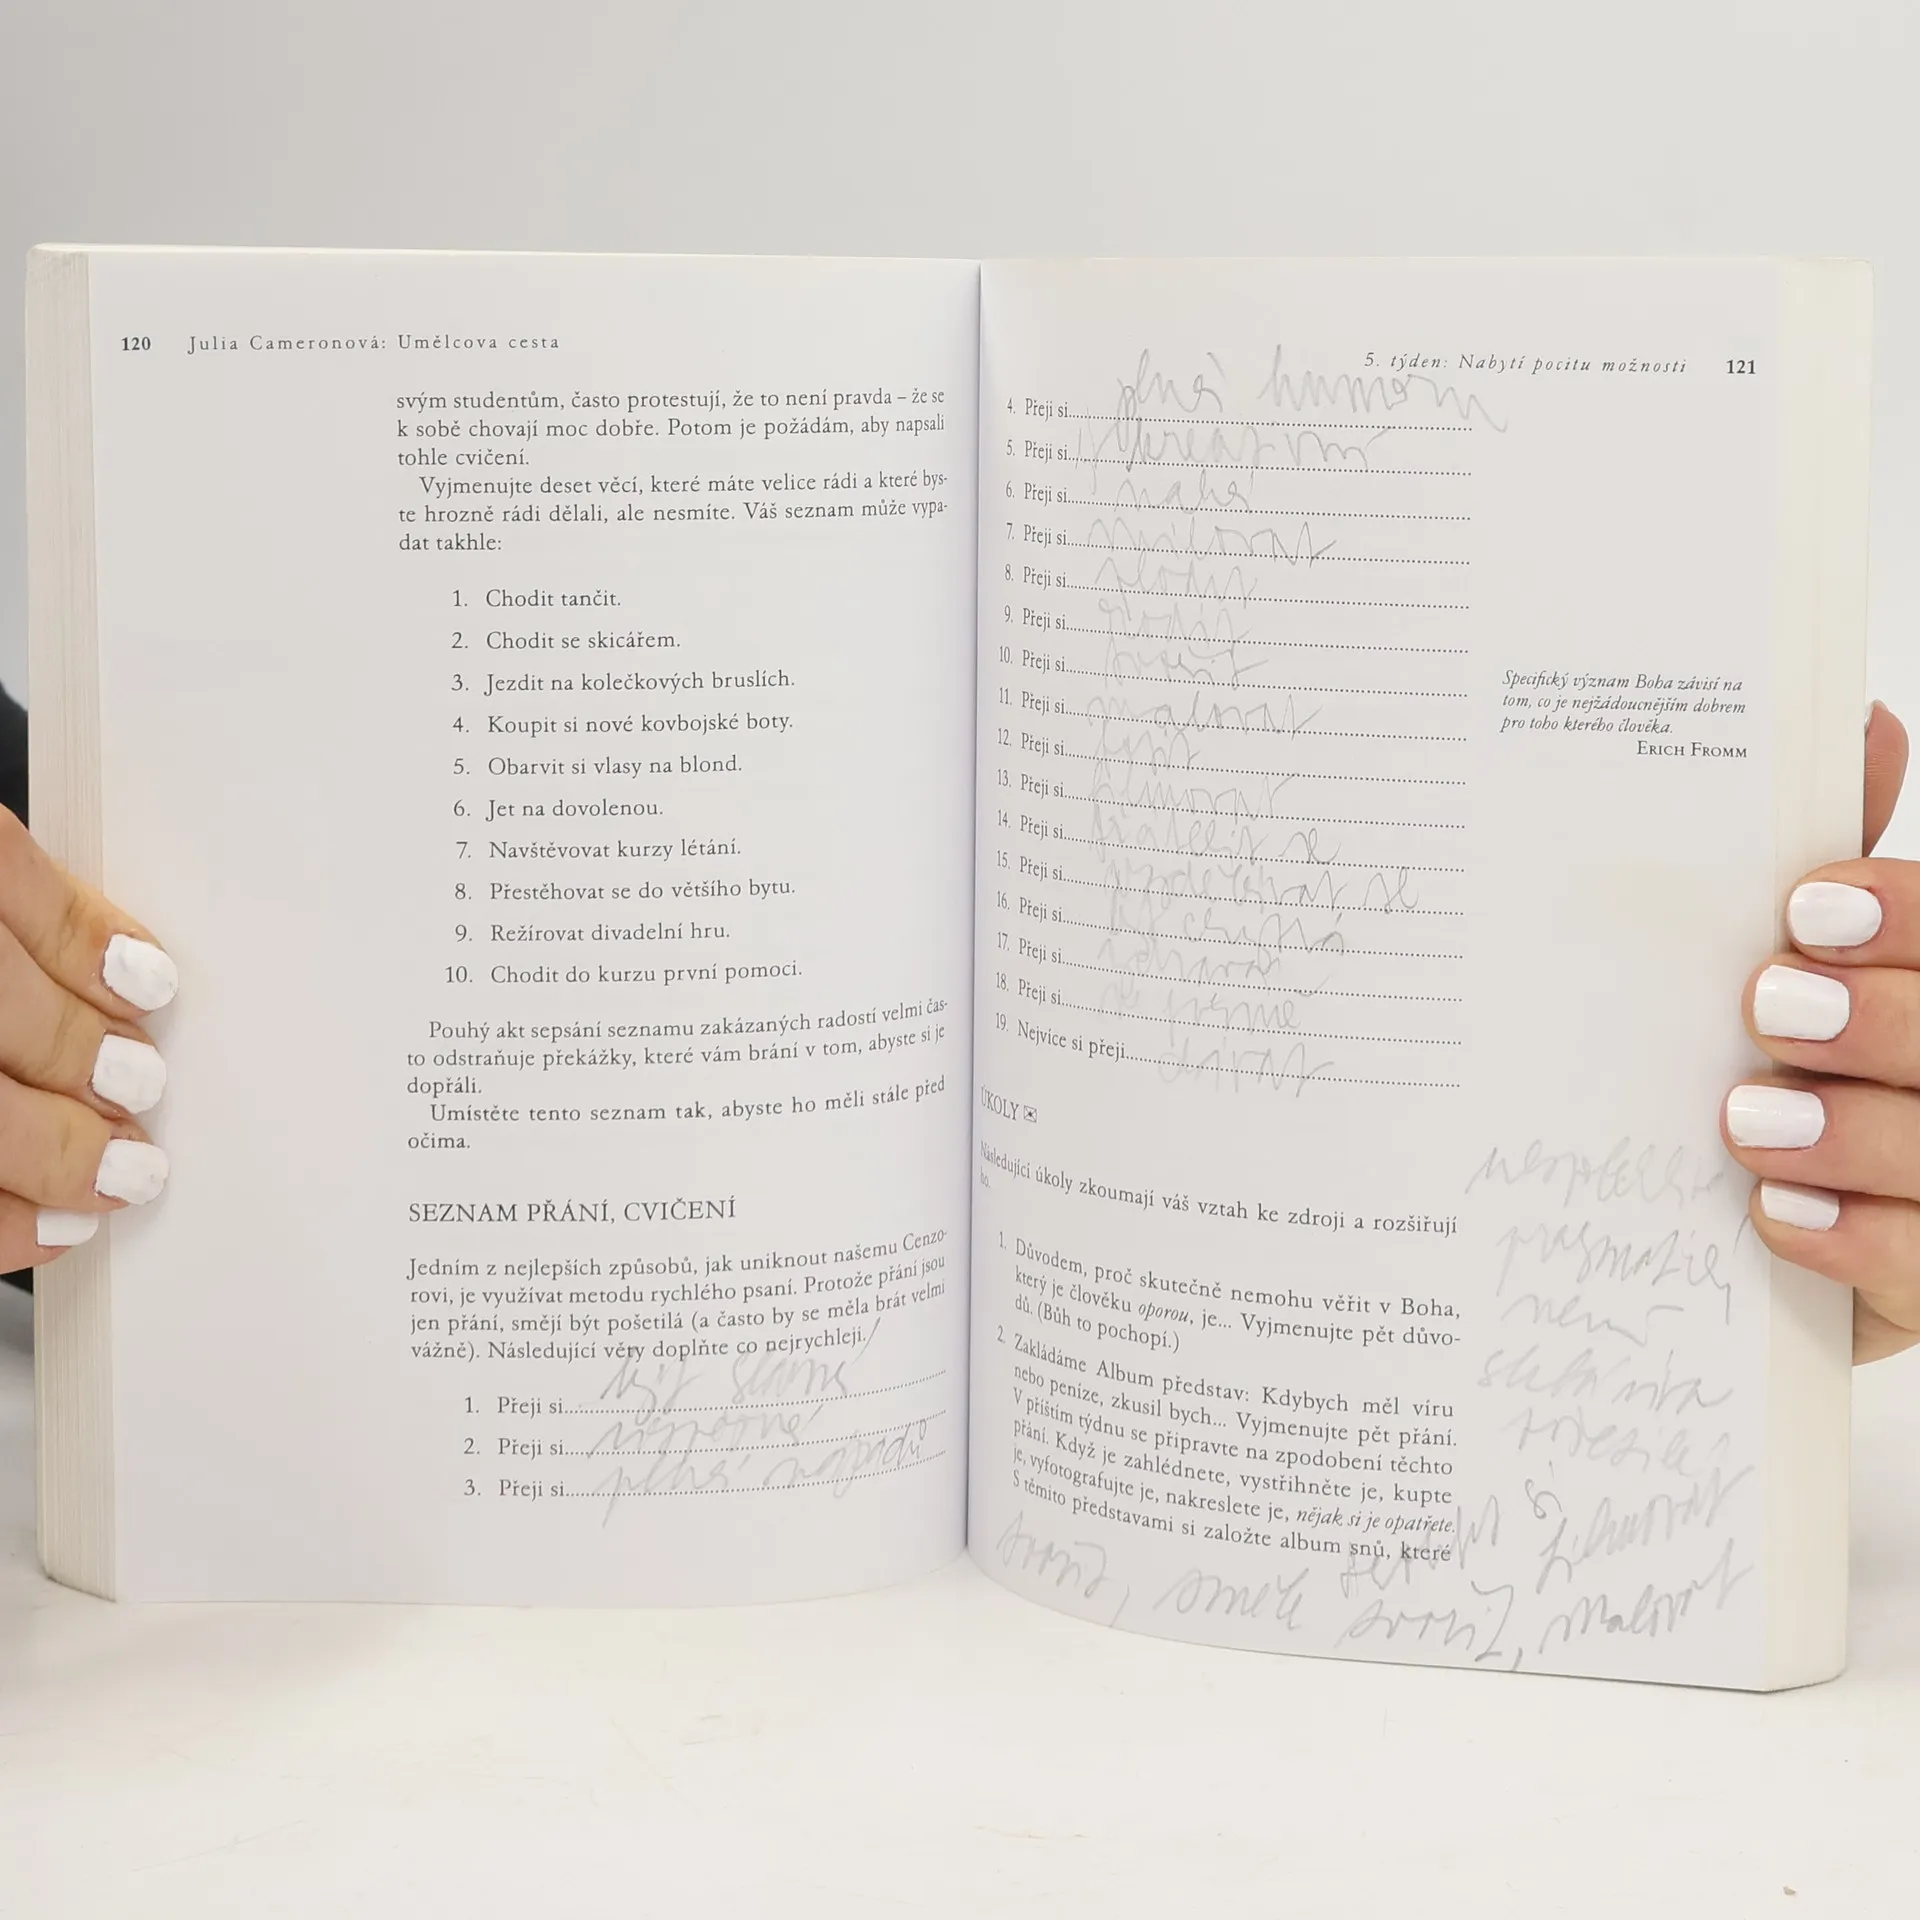 120 Julia Cameronová: Umělcova cesta
svým studentům, často protestují, že to není pravda – že se
k sobě chovají moc dobře. Potom je požádám, aby napsali
tohle cvičení.
Vyjmenujte deset věcí, které máte velice rádi a které bys-
te hrozně rádi dělali, ale nesmíte. Váš seznam může vypa-
dat takhle:
1. Chodit tančit.
2. Chodit se skicářem.
3. Jezdit na kolečkových bruslích.
4. Koupit si nové kovbojské boty.
5. Obarvit si vlasy na blond.
6. Jet na dovolenou.
7. Navštěvovat kurzy létání.
8. Přestěhovat se do většího bytu.
9. Režírovat divadelní hru.
10. Chodit do kurzu první pomoci.
Pouhý akt sepsání seznamu zakázaných radostí velmi čas-
to odstraňuje překážky, které vám brání v tom, abyste si je
dopřáli.
Umístěte tento seznam tak, abyste ho měli stále před
očima.
SEZNAM PŘÁNÍ, CVIČENÍ
Jedním z nejlepších způsobů, jak uniknout našemu Cenzo-
rovi, je využívat metodu rychlého psaní. Protože přání jsou
jen přání, smějí být pošetilá (a často by se měla brát velmi
vážně). Následující věty doplňte co nejrychleji.
1. Přeji si.......... být slavná
2. Přeji si..........
3. Přeji si.......... plná nápadů
5. týden: Nabytí pocitu možnosti 121
4. Přeji si.......... plná humoru
5. Přeji si.......... kreativní
6. Přeji si..........
7. Přeji si.......... milovat
8. Přeji si..........
9. Přeji si..........
10. Přeji si.......... tvořit
11. Přeji si.......... malovat
12. Přeji si..........
13. Přeji si.......... filmovat
14. Přeji si.......... se
15. Přeji si.......... vzdělávat se
16. Přeji si..........
17. Přeji si..........
18. Přeji si..........
19. Nejvíce si přeji..........
Specifický význam Boha závisí na
tom, co je nejžádoucnějším dobrem
pro toho kterého člověka.
ERICH FROMM
ÚKOLY
Následující úkoly zkoumají váš vztah ke zdroji a rozšiřují
ho.
1. Důvodem, proč skutečně nemohu věřit v Boha,
který je člověku oporou, je... Vyjmenujte pět důvo-
dů. (Bůh to pochopí.)
2. Zakládáme Album představ: Kdybych měl víru
nebo peníze, zkusil bych... Vyjmenujte pět přání.
V příštím týdnu se připravte na zpodobení těchto
přání. Když je zahlédnete, vystřihněte je, kupte
je, vyfotografujte je, nakreslete je, nějak si je opatřete.
S těmito představami si založte album snů, které
není
slabá víra
filmovat
tvořit, směle tvořit, malovat